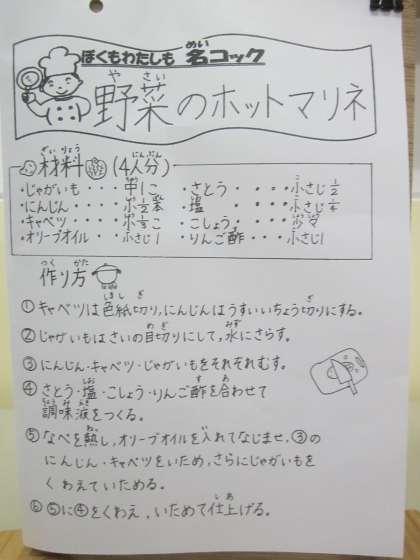 ぼくもわたしも 名コック
野菜のホットマリネ
材料 (4人分)
・じゃがいも・・・中1こ ・さとう ・・・・小さじ1/2
・にんじん ・・・小1/2本 ・塩 ・・・小さじ1/4
・キャベツ・・・小 こ ・こしょう・・・・少々
・オリーブオイル・・小さじ1 ・りんご酢・・・小さじ1
作り方
①キャベツは色紙切り,にんじんはうすいいちょう切りにする。
②じゃがいもはさいの目切りにして,水にさらす。
③にんじん・キャベツ・じゃがいもをそれぞれむす。
④さとう・塩・こしょう・りんご酢を合わせて
調味液をつくる。
⑤なべを熱し,オリーブオイルを入れてなじませ,③の
にんじん・キャベツをいため,さらにじゃがいもを
くわえていためる。
⑥⑤に④をくわえ,いためて仕上げる。